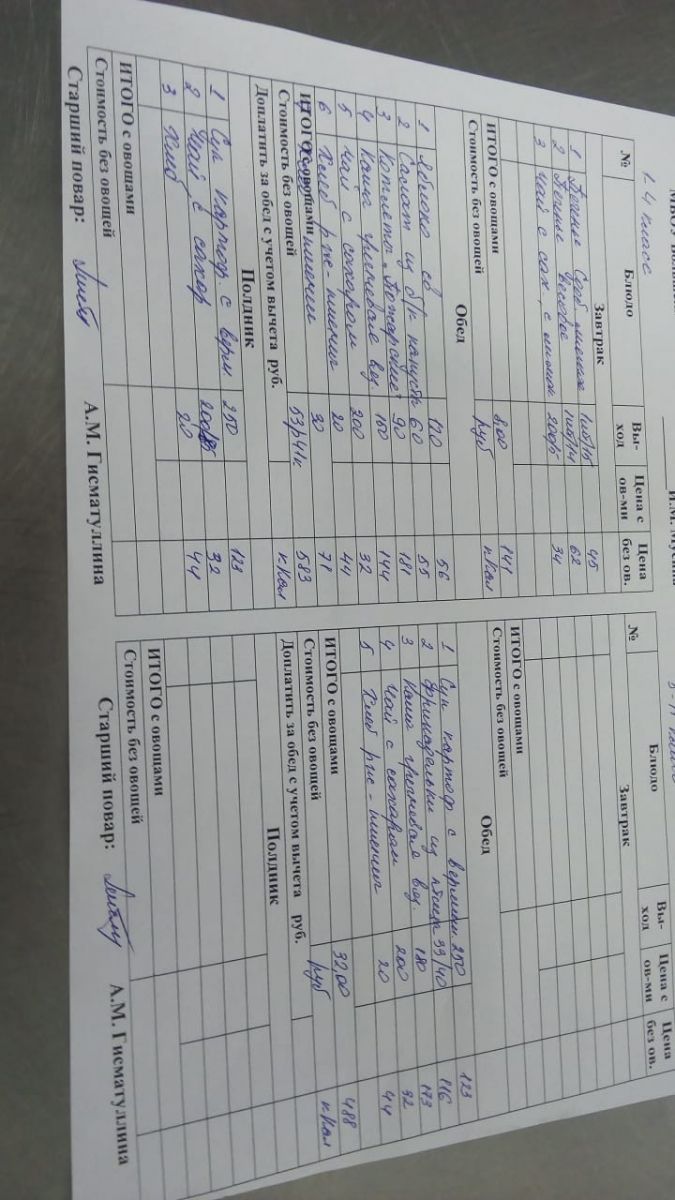 1-4 класс
№ Блюдо Вы-ход Цена с ов-ми Цена без ов.
Завтрак
1 Печенье 1шб/15 45
2 Печенье весовое 1шб/14 62
3 Чай с сах, с лимон 200/5 34
ИТОГО с овощами 8,00 141
Стоимость без овощей руб кКал
Обед
1 Яблоко св 120 56
2 Салат из б/к капусты 60 55
3 Котлета "Пожарские" 90 181
4 Каша гречневая 150 144
5 Чай с сахаром 200 32
6 Хлеб рже-пшенич 20 44
пшенич 30 78
ИТОГО с овощами 583
Стоимость без овощей 53р41к кКал
Доплатить за обед с учетом вычета руб.
Полдник
1 Суп картоф. с верм 250 123
2 Чай с сахар 200 32
3 Хлеб 20 44
ИТОГО с овощами
Стоимость без овощей
Старший повар: А.М. Гисматуллина
№ Блюдо Вы-ход Цена с ов-ми Цена без ов.
Завтрак
ИТОГО с овощами
Стоимость без овощей
Обед
1 Суп картоф с вермиш 250 123
2 Фрикадельки из птицы 99/40 116
3 Каша гречневая 180 173
4 Чай с сахаром 200 32
5 Хлеб рже-пшенич 20 44
ИТОГО с овощами 32,00 488
Стоимость без овощей руб кКал
Доплатить за обед с учетом вычета руб.
Полдник
ИТОГО с овощами
Стоимость без овощей
Старший повар: А.М. Гисматуллина